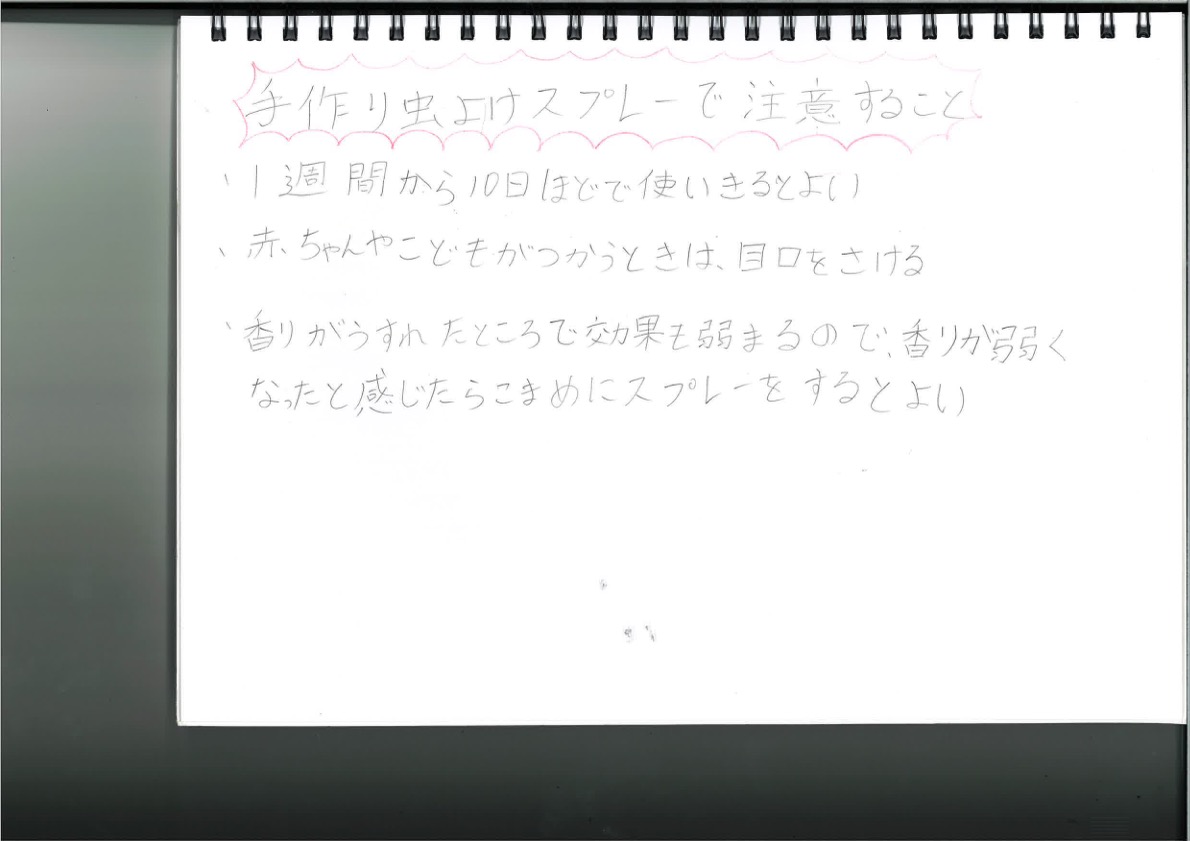 手作り虫よけスプレーで注意すること
・1週間から10日ほどで使いきるとよい
・赤ちゃんやこどもがつかうときは、目口をさける
・香りがうすれたところで効果も弱まるので、香りが弱く
なったと感じたらこまめにスプレーをするとよい